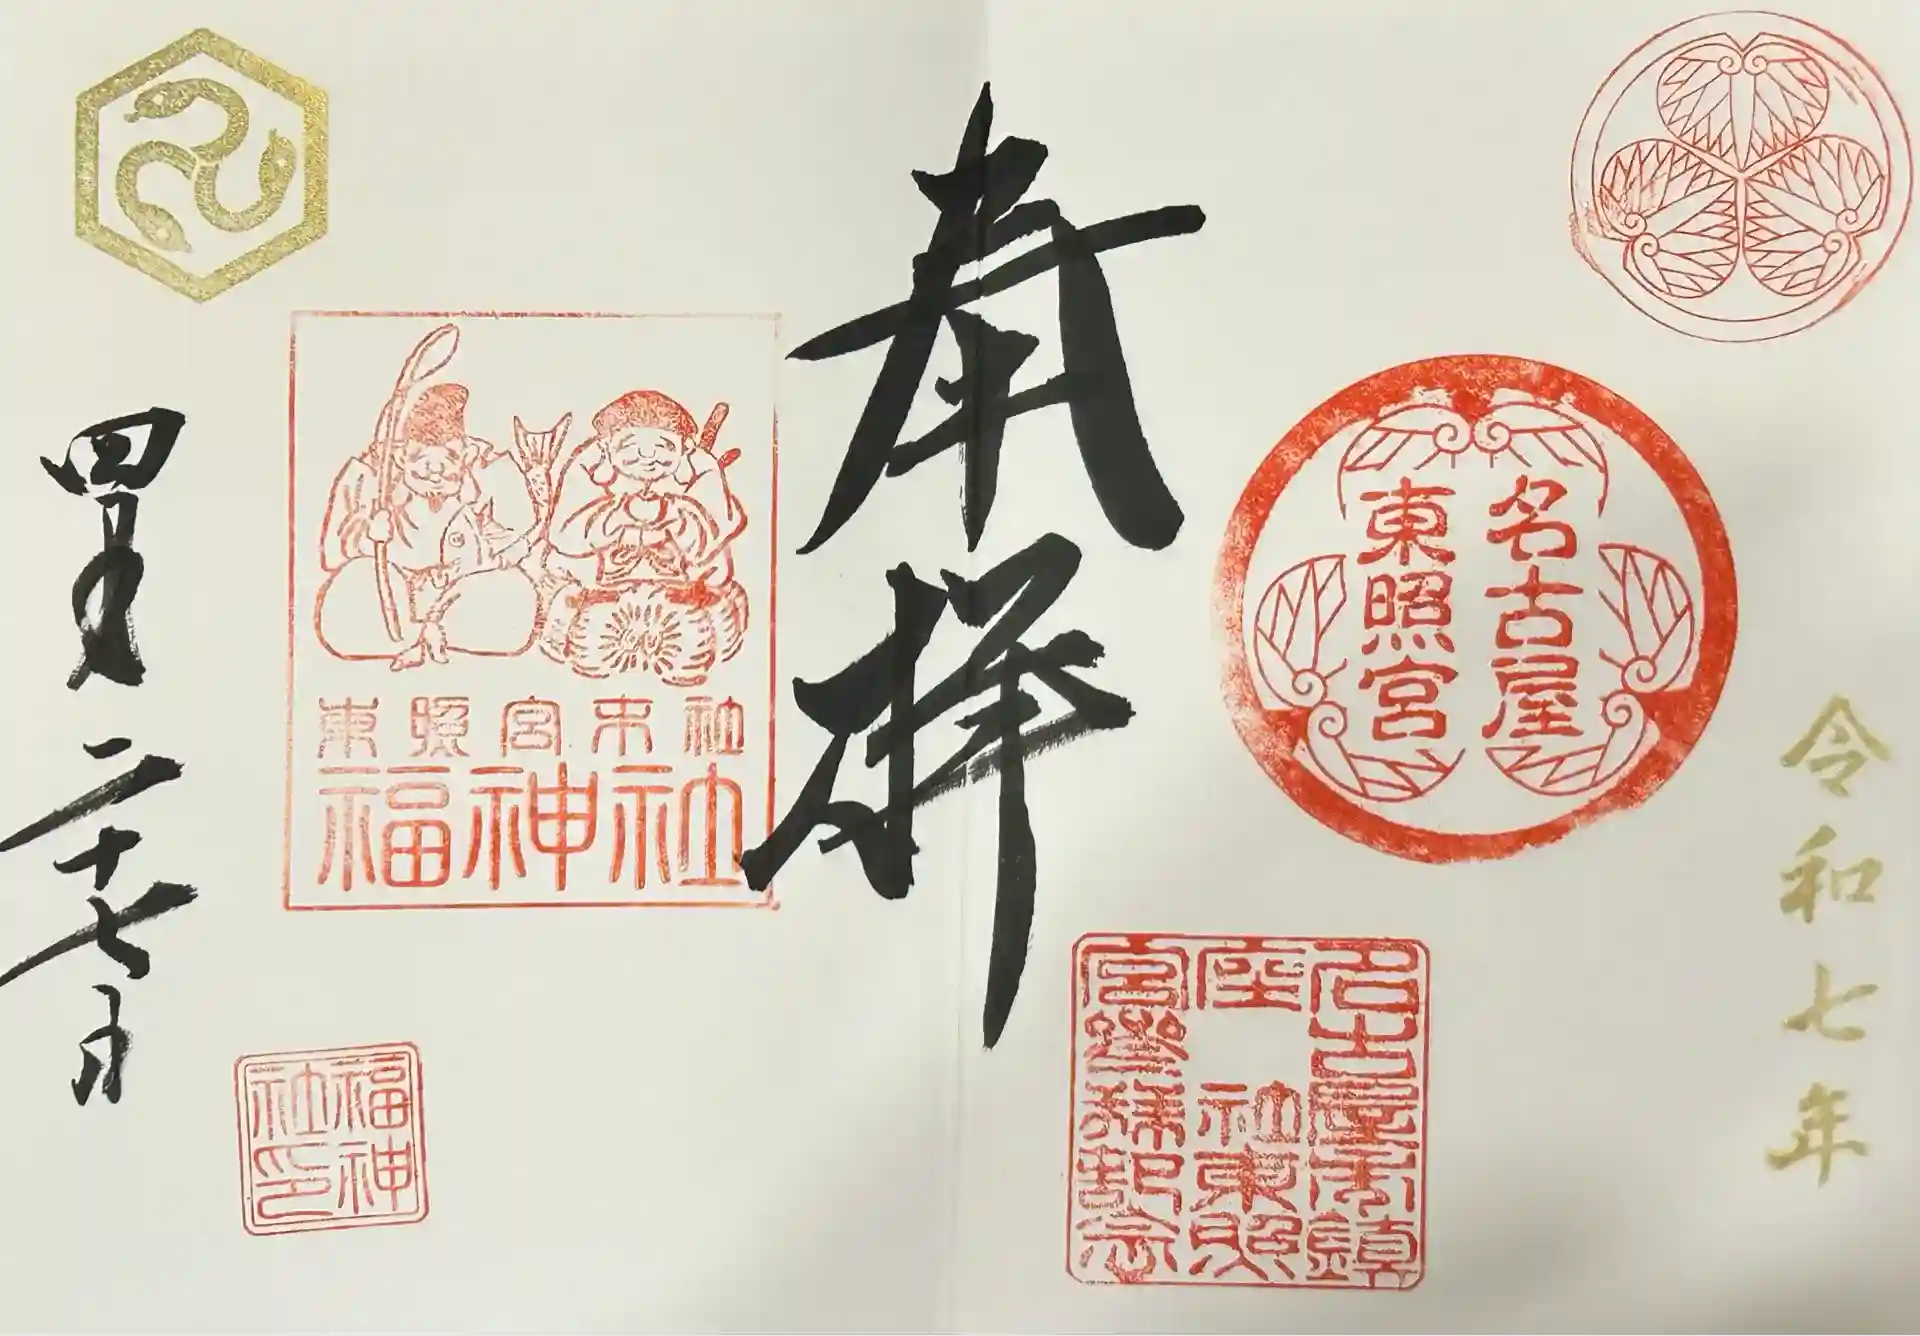 奉拝
名古屋
東照宮
令和七年
名古屋市鎮
座 社東照
宮参拝記念
東照宮末社
福神社
四月二十七日
福神
社印